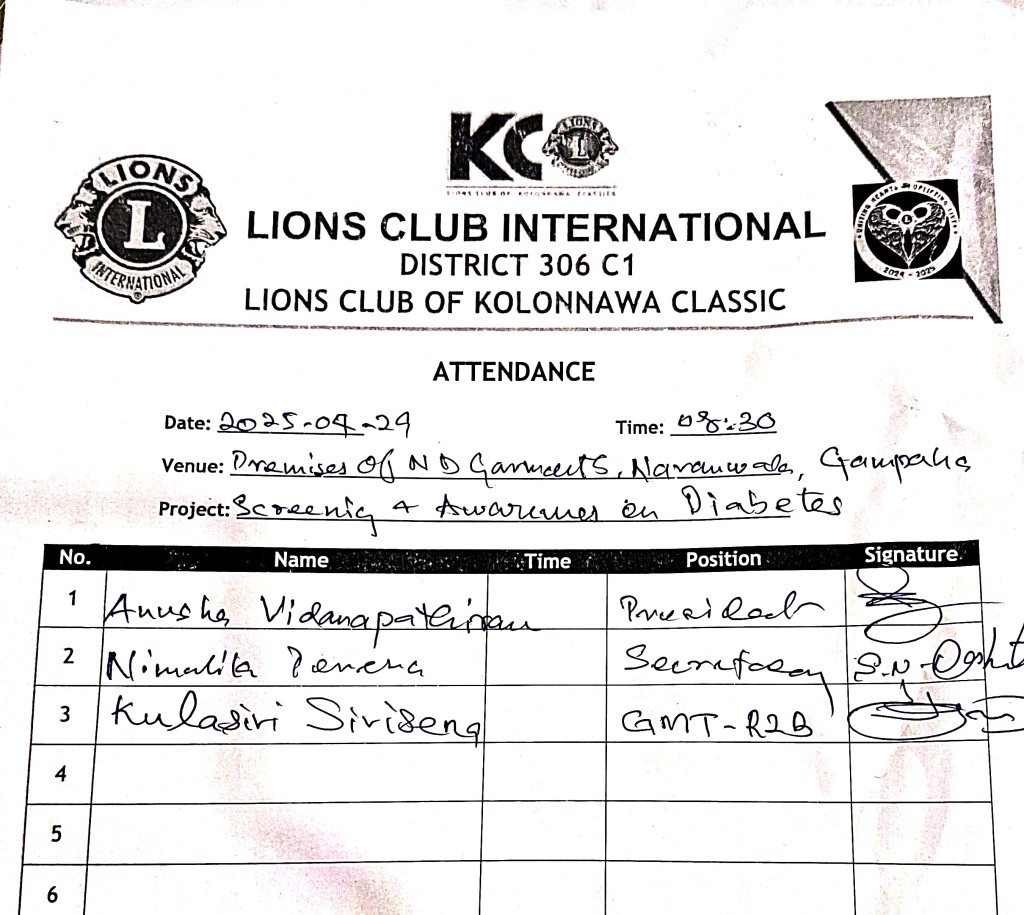 KC
LIONS
L
LIONS CLUB OF KOLONNAWA CLASSIC
LIONS
L
INTERNATIONAL
LIONS CLUB INTERNATIONAL
DISTRICT 306 C1
LIONS CLUB OF KOLONNAWA CLASSIC
UNITING HEARTS UPLIFTING LIVES
2024 - 2025
ATTENDANCE
Date: 2025-04-29 Time: 08:30
Venue: Premises Of N D Garments, Naranwala, Gampaha
Project: Screenig & Awareness on Diabetes
No. Name Time Position Signature
1 Anusha Vidanapathirana President
2 Nimalika Perera Secretary S.N.
3 Kulasiri Sirisena GMT-R2B
4
5
6